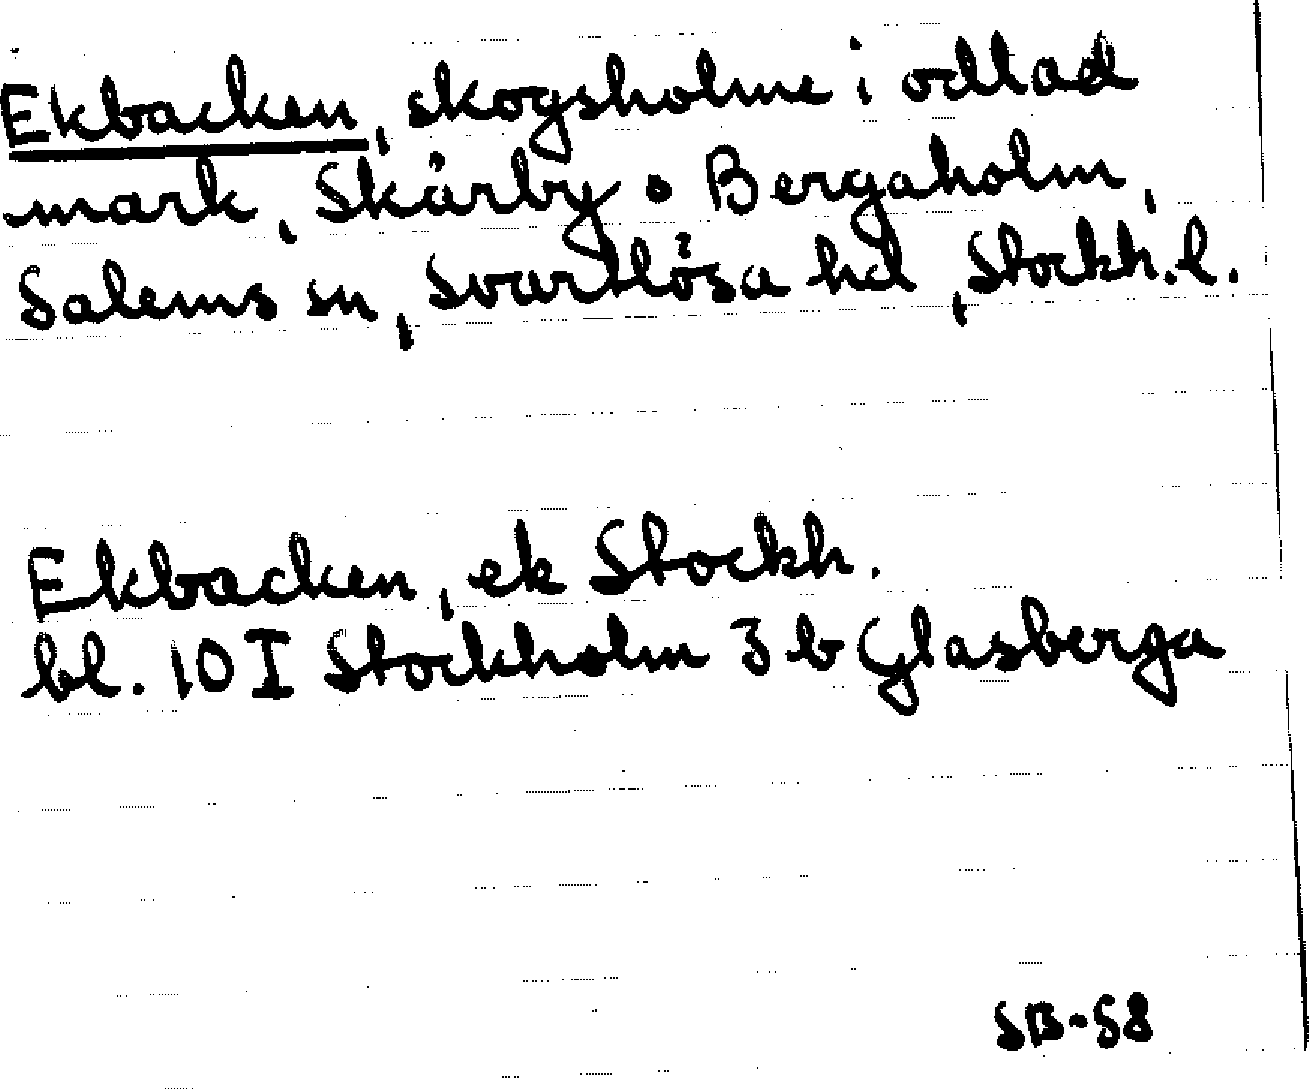 Ekbacken, skogsholme i odlad
mark, Skårby o Bergaholm,
Salems sn, Svartlösa hd, Stockh.l.
Ekbacken, ek Stockh.
bl. 10 I Stockholm 3 b Glasberga
SB-58